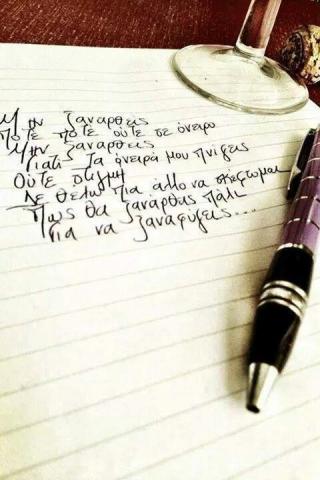 Μην ξαναρθεις
Ποτε ποτε ούτε σε όνειρο
Μην ξαναρθεις
Γιατι τα όνειρά μου πνίγεις
Ούτε στιγμή
Δε θέλω πια άλλο να σκέφτομαι
Πως θα ξαναρθεις πάλι
Για να ξαναφύγεις...